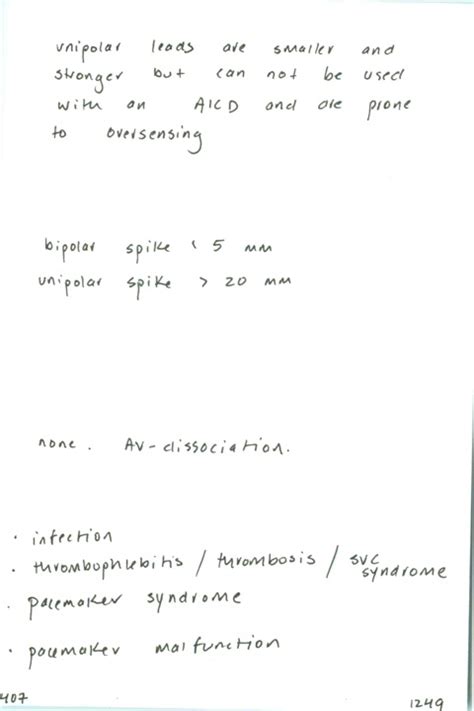 unipolar leads are smaller and
stronger but can not be used
with an AICD and are prone
to oversensing
bipolar spike < 5 mm
unipolar spike > 20 mm
none. AV-dissociation.
• infection
• thrombophlebitis / thrombosis / SVC syndrome
• pacemaker syndrome
• pacemaker malfunction
407
1249